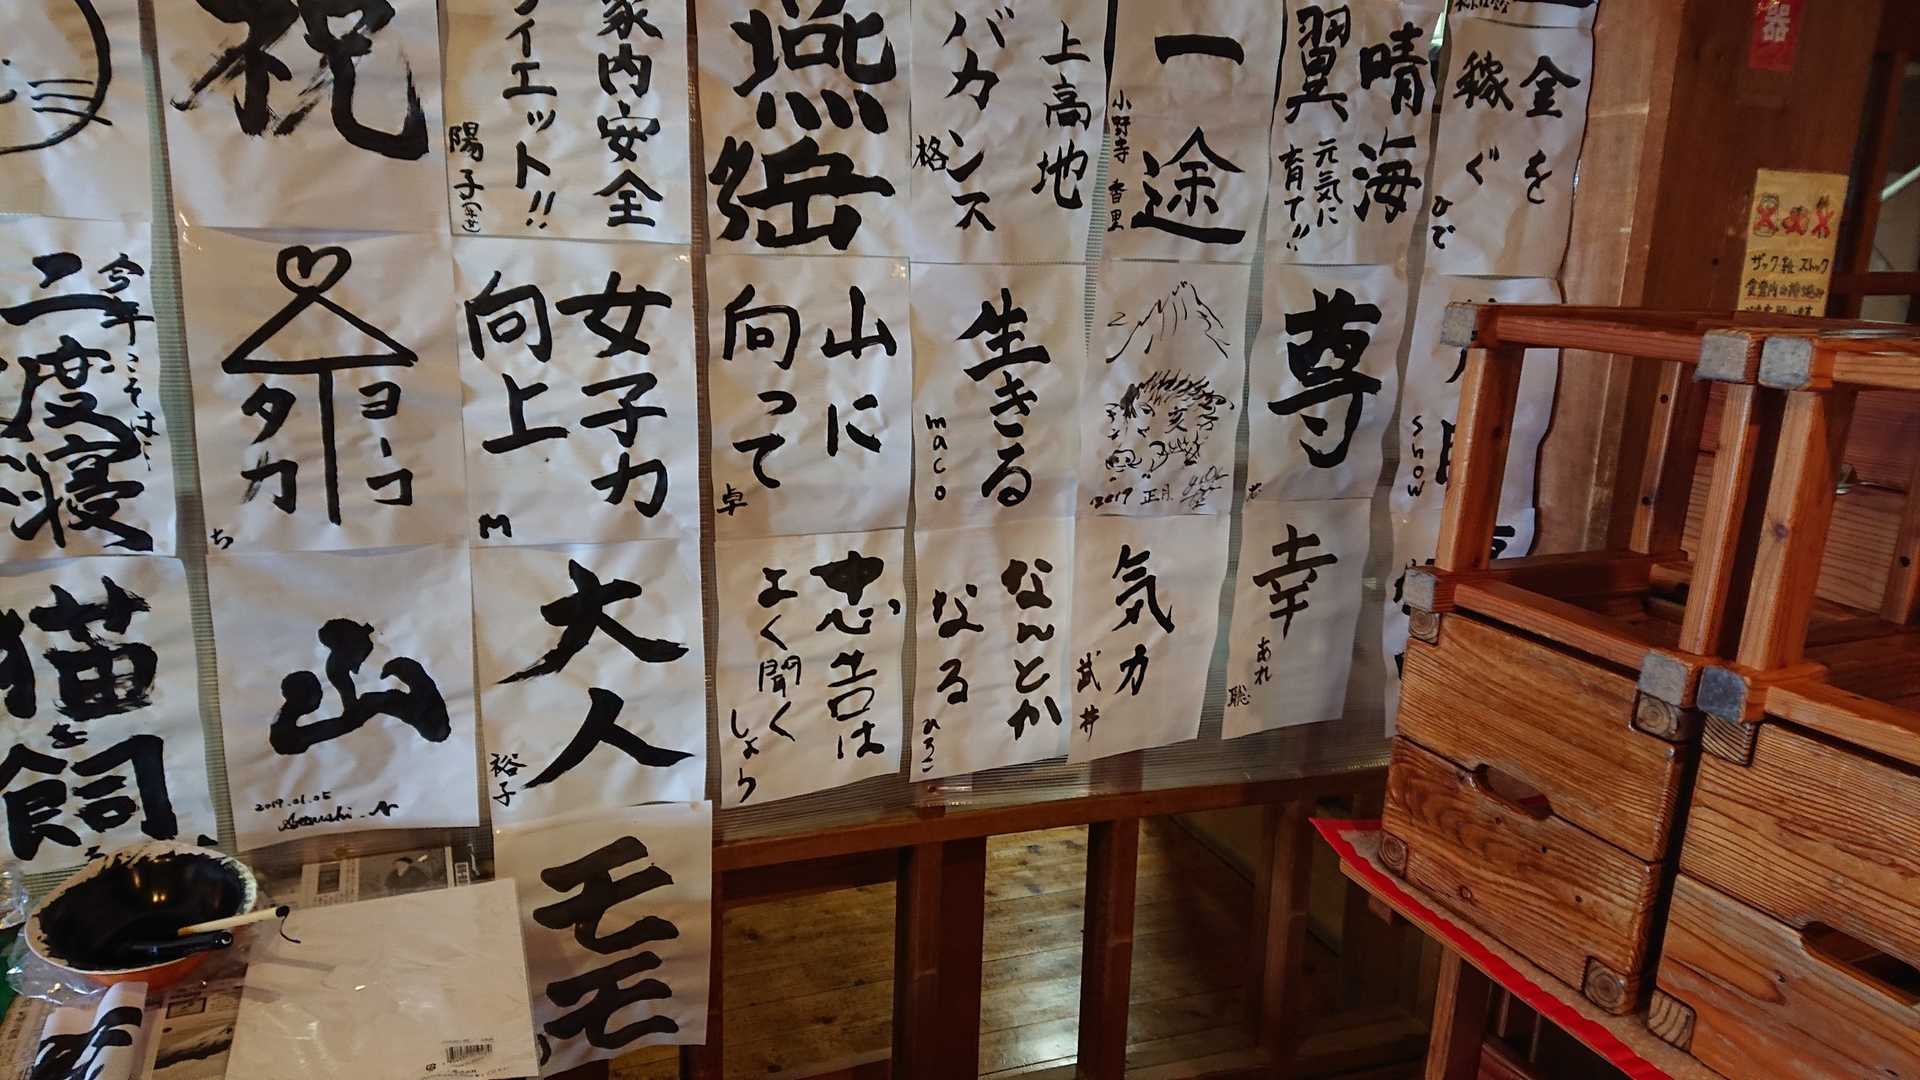 祝
家内安全
ダイエット!!
陽子
燕岳
上高地
バカンス
格
一途
小野寺 香里
晴海
翼
元気に
育て!!
金を
稼ぐ
ひで
器
ザック等ストック
今年こそは
二度寝
ヨーコ
タカ
ち
女子力
向上
M
山に
向って
卓
生きる
maco
亥
2019 正月
尊
show
猫を飼
山
2019.01.05
大人
裕子
忠告は
よく聞く
しょう
なんとか
なる
ひろこ
気力
武井
幸
あれ
聡
モモ